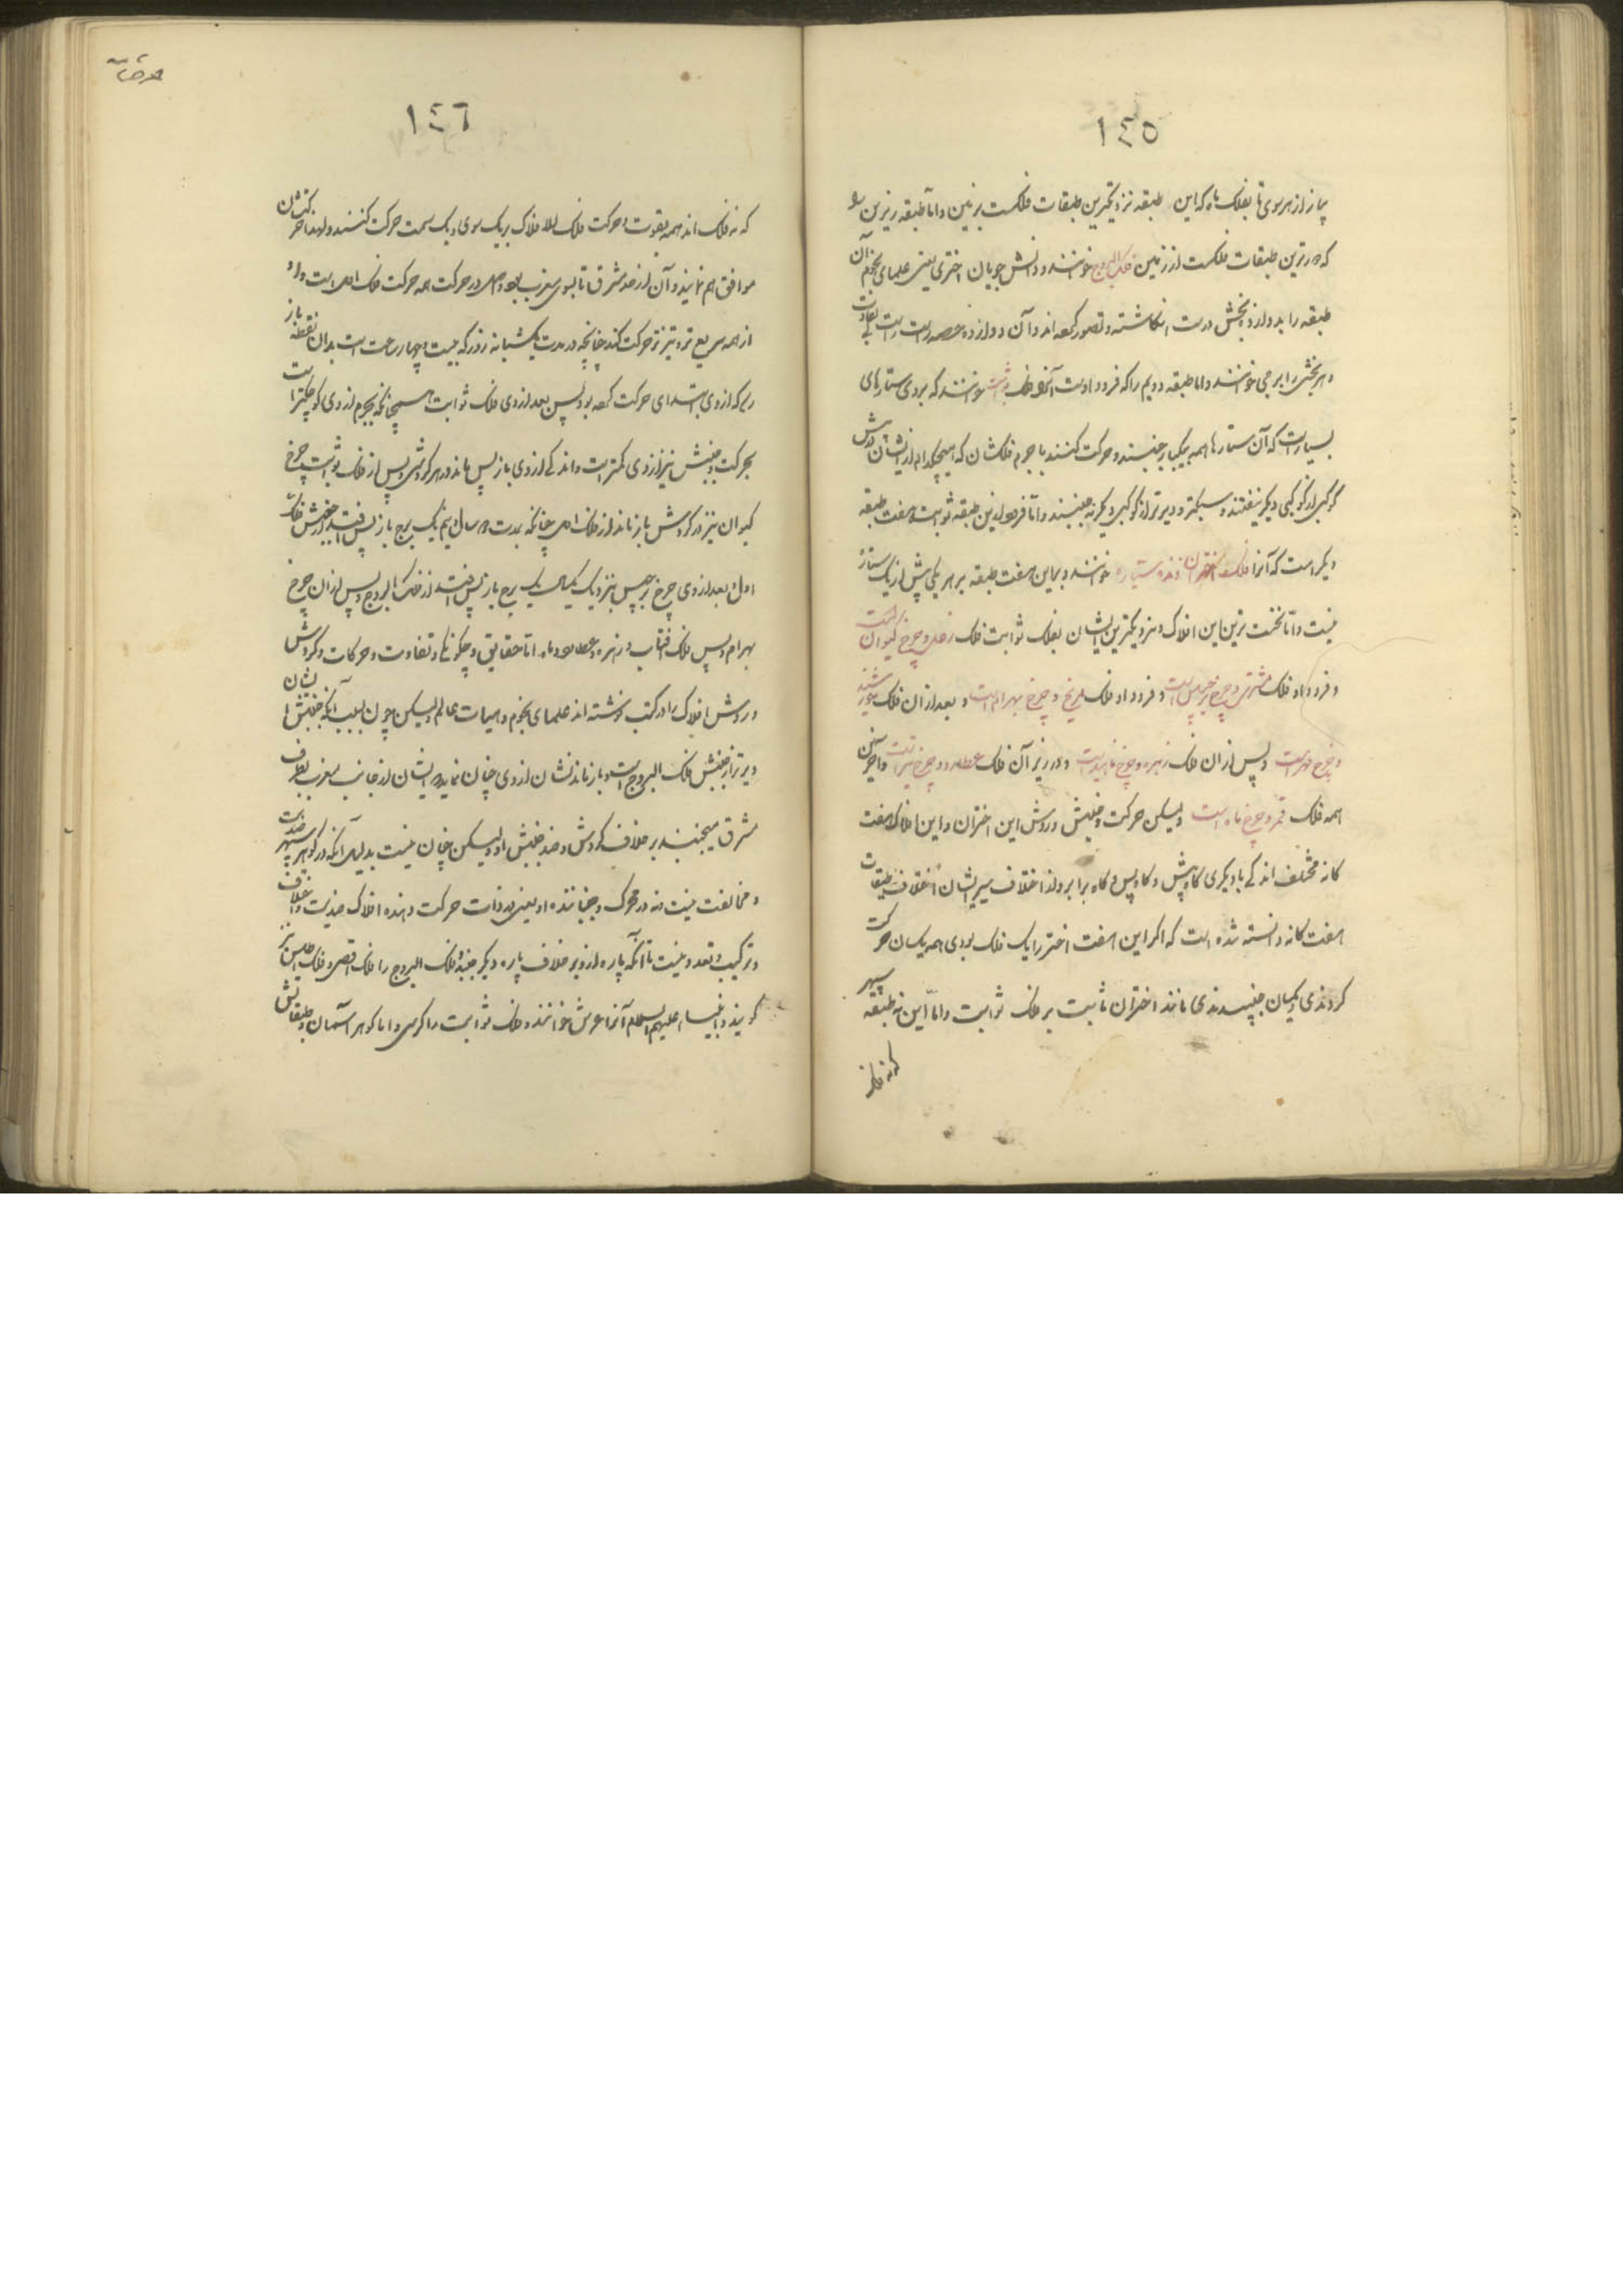 ١٤٥
نماز از هر سوی تا بفلک ماه که این طبقه نزدیکترین طبقات فلکست بر زمین و اما طبقه زبرین
که دورترین طبقات فلکست از زمین فلک البروج خوانند و دانش جویان اختری یعنی علمای نجوم آن
طبقه را بدوازده بخش درست انگاشته و تصور کرده اند و آن دوازده حصه راست راست بی تفاوت
و هر بخشی را برجی خوانند و اما طبقه دویم را که فرود اوست آنرا فلک ثوابت خوانند که بر وی ستارهای
بسیارست که آن ستارها همه بیکبار جنبند و حرکت کنند با جرم فلکشان که هیچکدام از ایشان
کوکبی از کوکبی دیگر نیفتند و سبکتر و دیرتر از کوکبی دیگر نه جنبند و اما فرود این طبقه ثوابت هفت طبقه
دیگر است که آنرا فلک اختران رونده سیاره خوانند و بر این هفت طبقه بر هر یکی بیش از یک ستاره
نیست و اما نخست ترین این افلاک و نزدیکترین ایشان بفلک ثوابت فلک زحل و چرخ کیوان است
و فرود او فلک مشتری و چرخ برجیس است و فرود او فلک مریخ و چرخ بهرام است و بعد از ان فلک خورشید
و چرخ مهر است و پس از ان فلک زهره و چرخ ناهید است و در زیر آن فلک عطارد و چرخ تیر است و آخرین
همه فلک قمر و چرخ ماه است ولیکن حرکت و جنبش و روش این اختران و این افلاک هفت
کانه مختلف اند که با دیگری گاه پیش و گاه پس و گاه برابر و از اختلاف سیر ایشان اختلاف طبقات
هفت کانه دانسته شده است که اگر این هفت اختر را یک فلک بودی همه یکسان حرکت
کردندی و یکسان جنبیدندی مانند اختران ثابت بر فلک ثوابت و اما این نه طبقه سپهر
که نه فلک
١٤٦
که نه فلک اند همه بقوت و حرکت فلک الافلاک بر یک سوی و یک سمت حرکت کنند و لهذا حرکتشان
موافق هم نمایند و آن از حد مشرق تا بسوی مغرب بود و اصل در حرکت همه حرکت فلک اعلی است و او
از همه سریع تر و تیزتر حرکت کند چنانچه در مدت یکشبانه روز که بیست و چهار ساعت است بدان نقطه باز
رسد که از وی ابتدای حرکت کرده بود پس بعد از وی فلک ثوابت همچنانکه بجرم از وی کوچکتر است
بحرکت و جنبش نیز از وی کمتر است و اندکی از وی باز پس ماند در هر گردشی و پس از فلک ثوابت چرخ
کیوان نیز در گردش باز ماند از فلک اعلی چنانکه بمدت دو سال و نیم یک برج باز پس افتد از جنبش فلک
اول و بعد از وی چرخ برجیس بنزدیک یکسال یک برج باز پس افتد از فلک البروج و پس از ان چرخ
بهرام و پس فلک آفتاب و زهره و عطارد و ماه اما حقایق و چگونگی و تفاوت و حرکات و گردش
و روش افلاک را در کتب نوشته اند علمای نجوم و هیات عالم ولیکن چون بسبب آنکه جنبش ایشان
دیرتر از جنبش فلک البروج است و باز ماندنشان از وی چنان نماید که ایشان از جانب مغرب بطرف
مشرق میجنبند بر خلاف گردش و ضد جنبش او ولیکن چنان نیست بدلیل آنکه در گوهر سپهر ضدیت
و مخالفت نیست و نه در محرک و جنباننده او یعنی در ذات حرکت دهنده افلاک ضدیت و اختلاف
و ترکیب و تعدد نیست تا آنکه پاره از و بر خلاف پاره دیگر جنبد و فلک البروج را فلک اقصی و فلک اطلس نیز
گویند و انبیاء علیهم السلام آنرا عرش خوانند و فلک ثوابت را کرسی و اما گوهر آسمان و طبقاتش